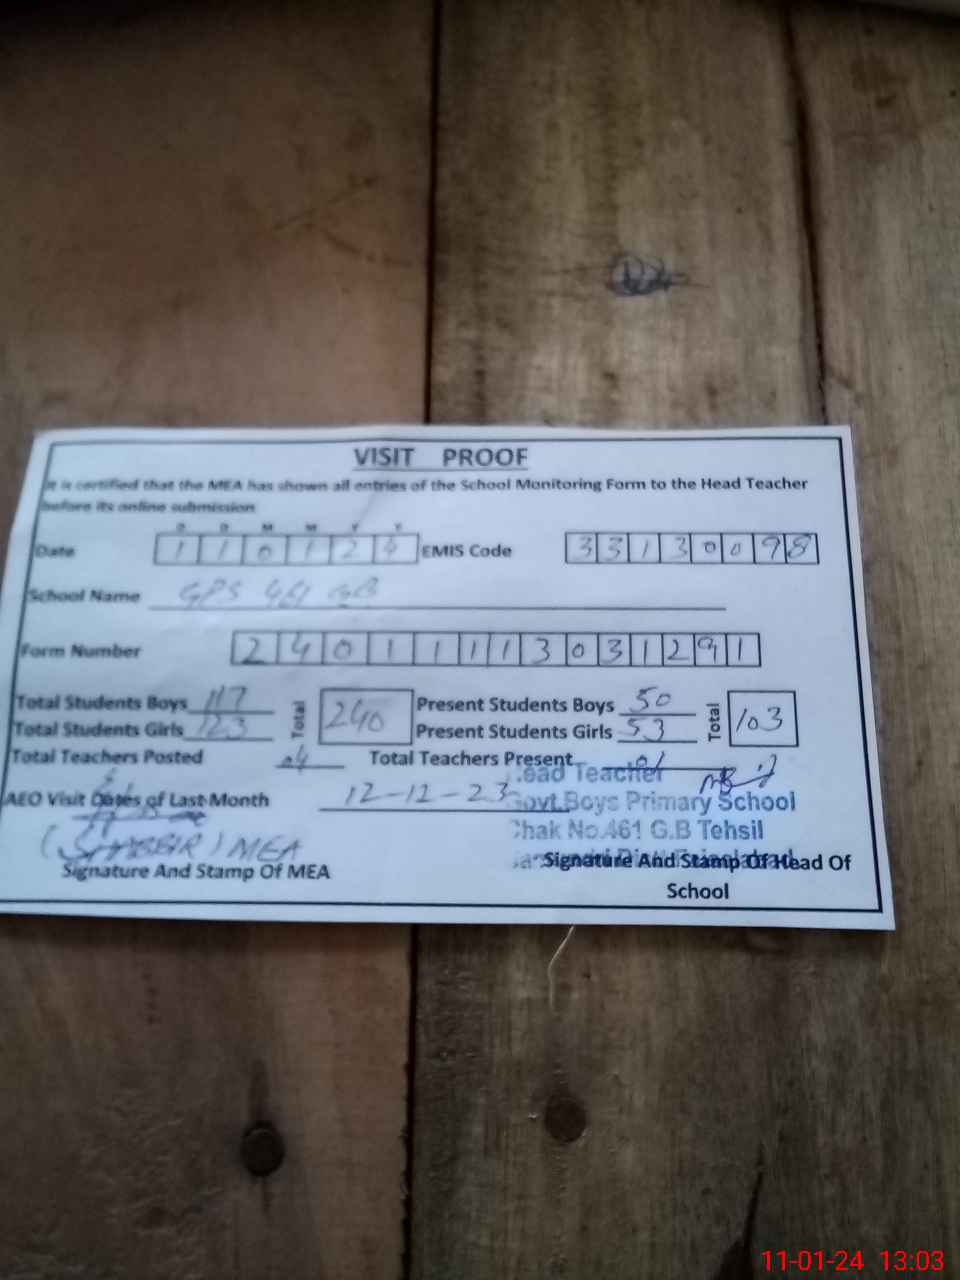 VISIT PROOF
It is certified that the MEA has shown all entries of the School Monitoring Form to the Head Teacher
before its online submission
D D M M Y Y
Date 1 1 0 1 2 4 EMIS Code 3 3 1 3 0 0 9 8
School Name GPS 461 GB
Form Number 2 4 0 1 1 1 1 3 0 3 1 2 9 1
Total Students Boys 117 Total 240 Present Students Boys 50 Total 103
Total Students Girls 123 Present Students Girls 53
Total Teachers Posted 04 Total Teachers Present 01
Head Teacher
AEO Visit Dates of Last Month 12-12-23
Govt.Boys Primary School
Chak No.461 G.B Tehsil
(SHABBIR) MEA
Signature And Stamp Of MEA Signature And Stamp Of Head Of
School
11-01-24 13:03